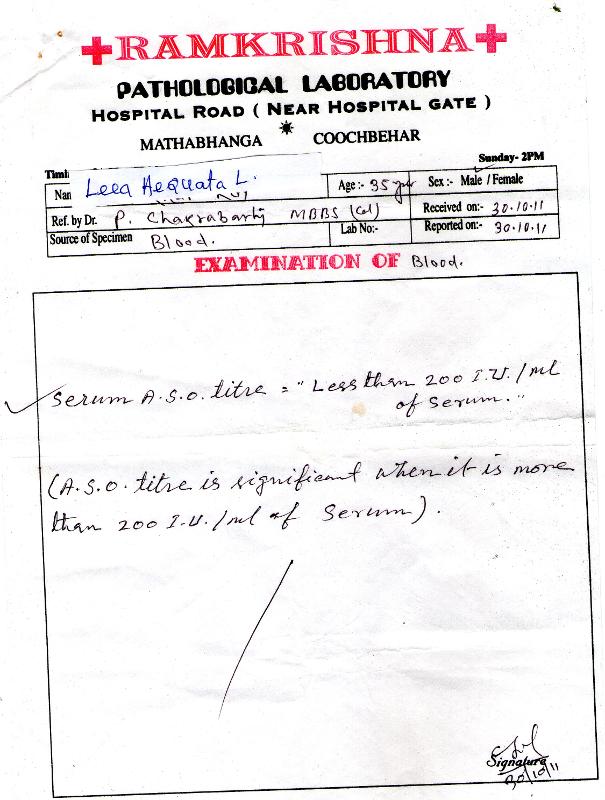 RAMKRISHNA
PATHOLOGICAL LABORATORY
HOSPITAL ROAD ( NEAR HOSPITAL GATE )
MATHABHANGA COOCHBEHAR
Sunday- 2PM
Timi
Nan Leea Hequata L. Age :- 35 yrs Sex :- Male / Female
Ref. by Dr. P. Chakrabarty MBBS (cal) Received on:- 30.10.11
Source of Specimen Blood. Lab No:- Reported on:- 30.10.11
EXAMINATION OF Blood.
Serum A.S.O. titre = "Less than 200 I.U./ml
of Serum."
(A.S.O. titre is significant when it is more
than 200 I.U./ml of Serum).
Signature
30/10/11